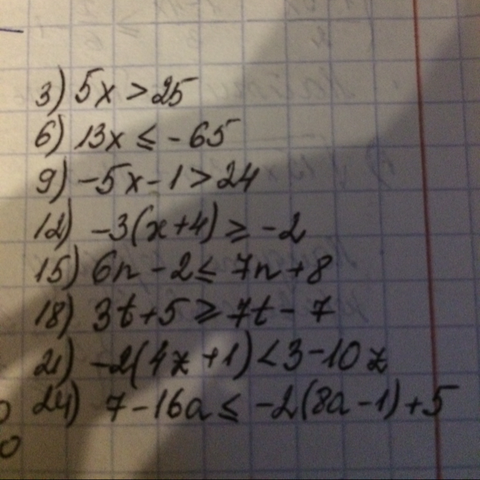 3) 5x > 25
6) 13x ≤ -65
9) -5x - 1 > 24
12) -3(x+4) ≥ -2
15) 6n - 2 ≤ 7n + 8
18) 3t + 5 ≥ 7t - 7
21) -2(4z + 1) < 3 - 10z
24) 7 - 16a ≤ -2(8a - 1) + 5